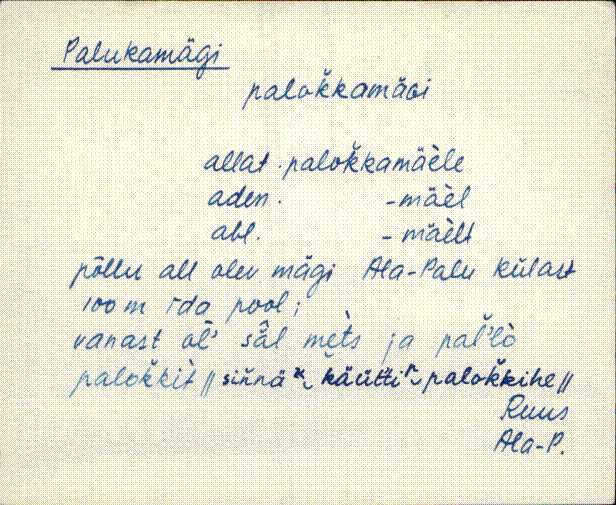 Palukamägi
palok̆kamäɢi
allat. palok̆kamäèle
aden. -mäèl
abl. -mäèlt
põllu all olev mägi Ala-Palu külast
100 m ida pool;
vanast ol' säl mèts ja pal'l'ò
palok̆kìt // siňnä käütti palok̆kihe //
Ruus
Ala-P.